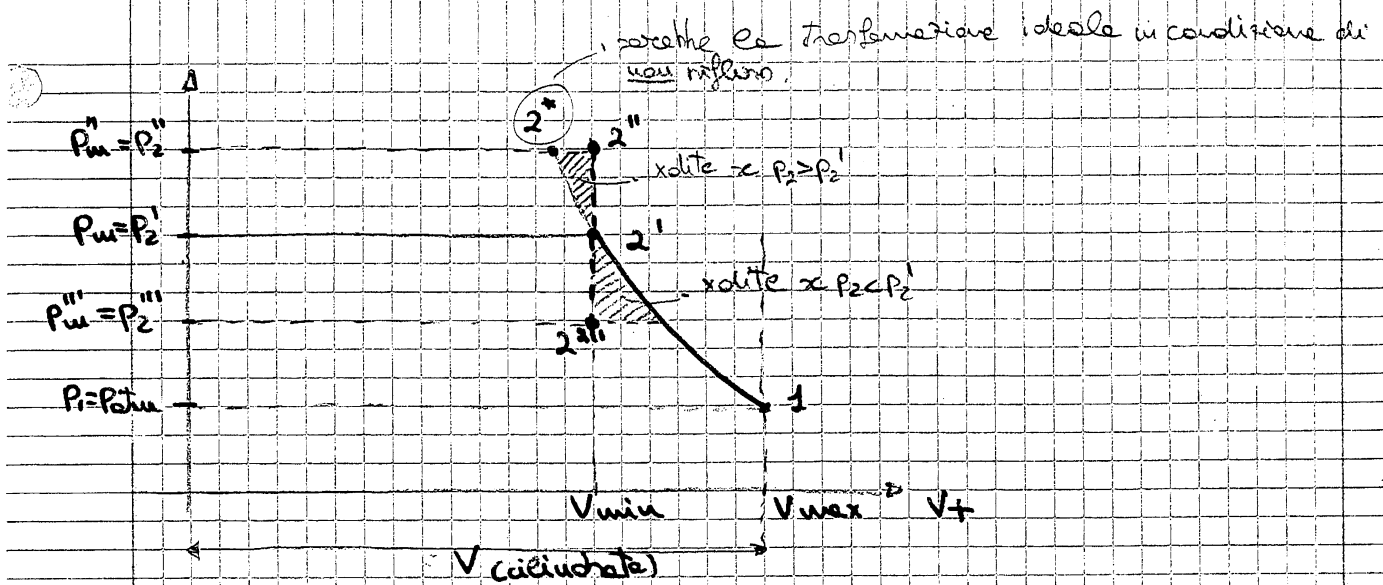 sarebbe la trasformazione ideale in condizione di
non riflusso.
2*
P"m = P2"
2"
xdite x P2>P2'
Pm=P2'
2'
xdite x P2<P2'
P'''m=P2'''
2'''
P1=Patm
1
Vmin Vmax V+
V (cilindrata)